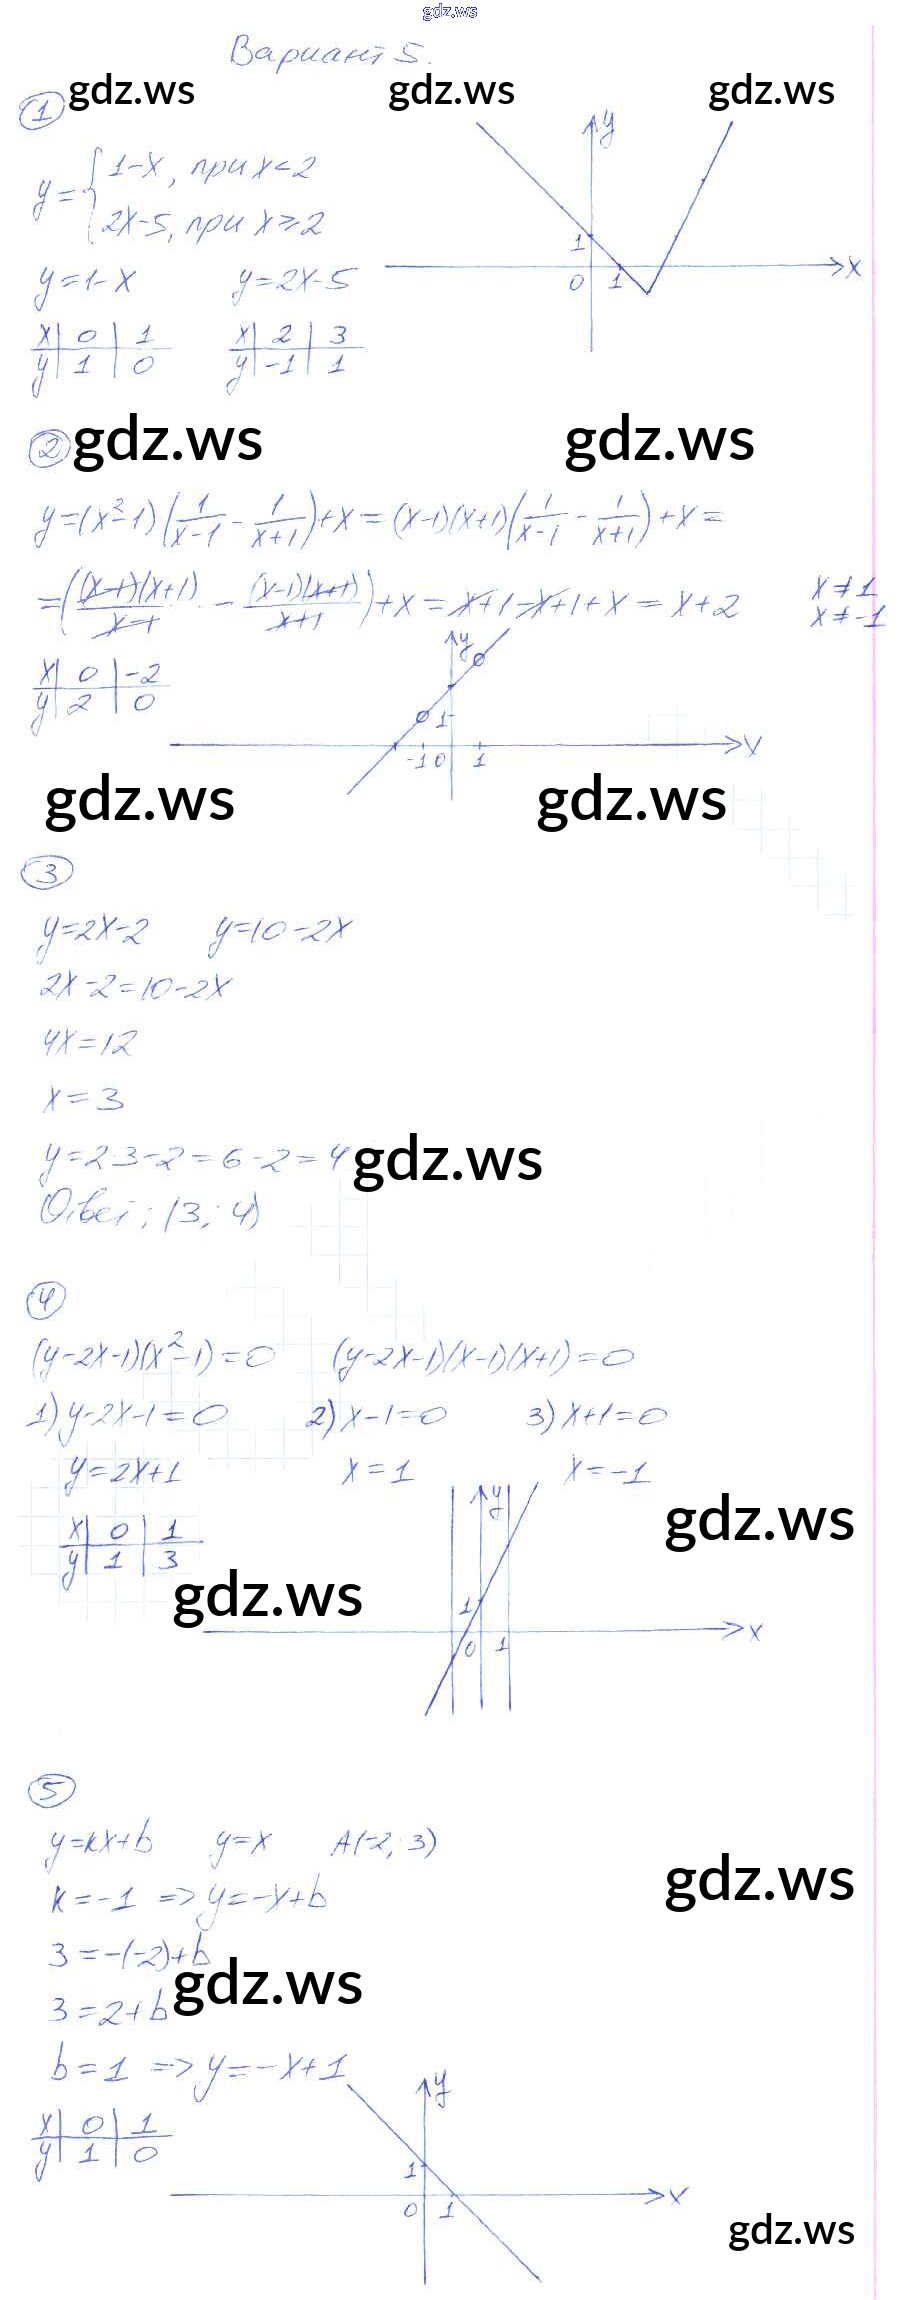 gdz.ws
Вариант 5.
gdz.ws gdz.ws gdz.ws
1
y = { 1-x, при x<2
2x-5, при x≥2
y=1-x y=2x-5
x 0 1 x 2 3
y 1 0 y -1 1
y
1
0 1 x
2 gdz.ws gdz.ws
y=(x²-1)(1/(x-1) - 1/(x+1))+x=(x-1)(x+1)(1/(x-1) - 1/(x+1))+x=
=((x-1)(x+1)/(x-1) - (x-1)(x+1)/(x+1))+x=x+1-x+1+x=x+2 x≠1
x≠-1
x 0 -2
y 2 0
y
1
-1 0 1 x
gdz.ws gdz.ws
3
y=2x-2 y=10-2x
2x-2=10-2x
4x=12
x=3
y=2·3-2=6-2=4 gdz.ws
Ответ: (3; 4)
4
(y-2x-1)(x²-1)=0 (y-2x-1)(x-1)(x+1)=0
1) y-2x-1=0 2) x-1=0 3) x+1=0
y=2x+1 x=1 x=-1
x 0 1
y 1 3
y
gdz.ws
gdz.ws
1
0 1 x
5
y=kx+b y=x A(-2; 3)
k=-1 => y=-x+b gdz.ws
3=-(-2)+b
gdz.ws
3=2+b
b=1 => y=-x+1
x 0 1
y 1 0
y
1
0 1 x
gdz.ws